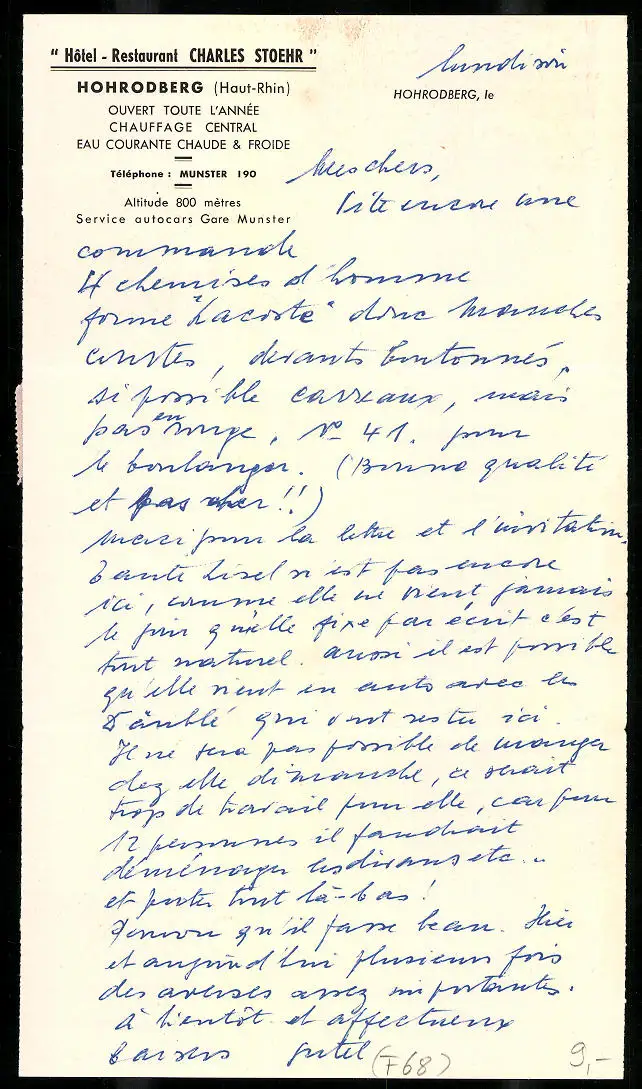 " Hôtel - Restaurant CHARLES STOEHR "
HOHRODBERG (Haut-Rhin)
OUVERT TOUTE L'ANNÉE
CHAUFFAGE CENTRAL
EAU COURANTE CHAUDE & FROIDE
Téléphone : MUNSTER 190
Altitude 800 mètres
Service autocars Gare Munster
lundi soir
HOHRODBERG, le
Mes chers,
Vite encore une
commande
4 chemises d'homme
forme "Lacoste" donc manches
courtes, devants boutonnés,
si possible carreaux, mais
pas en rouge, No 41. pour
le boulanger. (Bonne qualité
et pas cher !!)
merci pour la lettre et l'invitation.
Tante Lisel n'est pas encore
ici, comme elle ne vient jamais
le jour qu'elle fixe par écrit c'est
tout naturel. aussi il est possible
qu'elle vient en auto avec les
qui ont resto ici.
Il ne sera pas possible de manger
chez elle dimanche, ce serait
trop de travail pour elle, car pour
12 personnes il faudrait
déménager les divans etc...
et porter tout là-bas !
Pourvu qu'il fasse beau. Hier
et aujourd'hui plusieurs fois
des averses assez importantes.
à bientôt et affectueux
baisers Gretel
(F68)
9,-